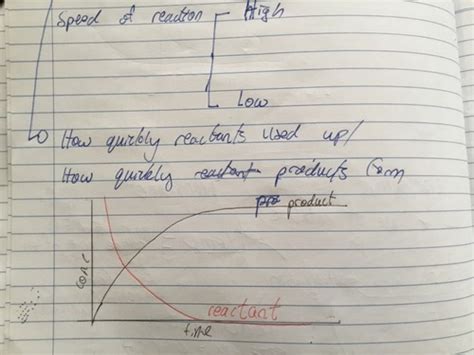 Speed of reaction High
Low
How quickly reactants used up/
How quickly reactant products form
pro product
conc
reactant
time